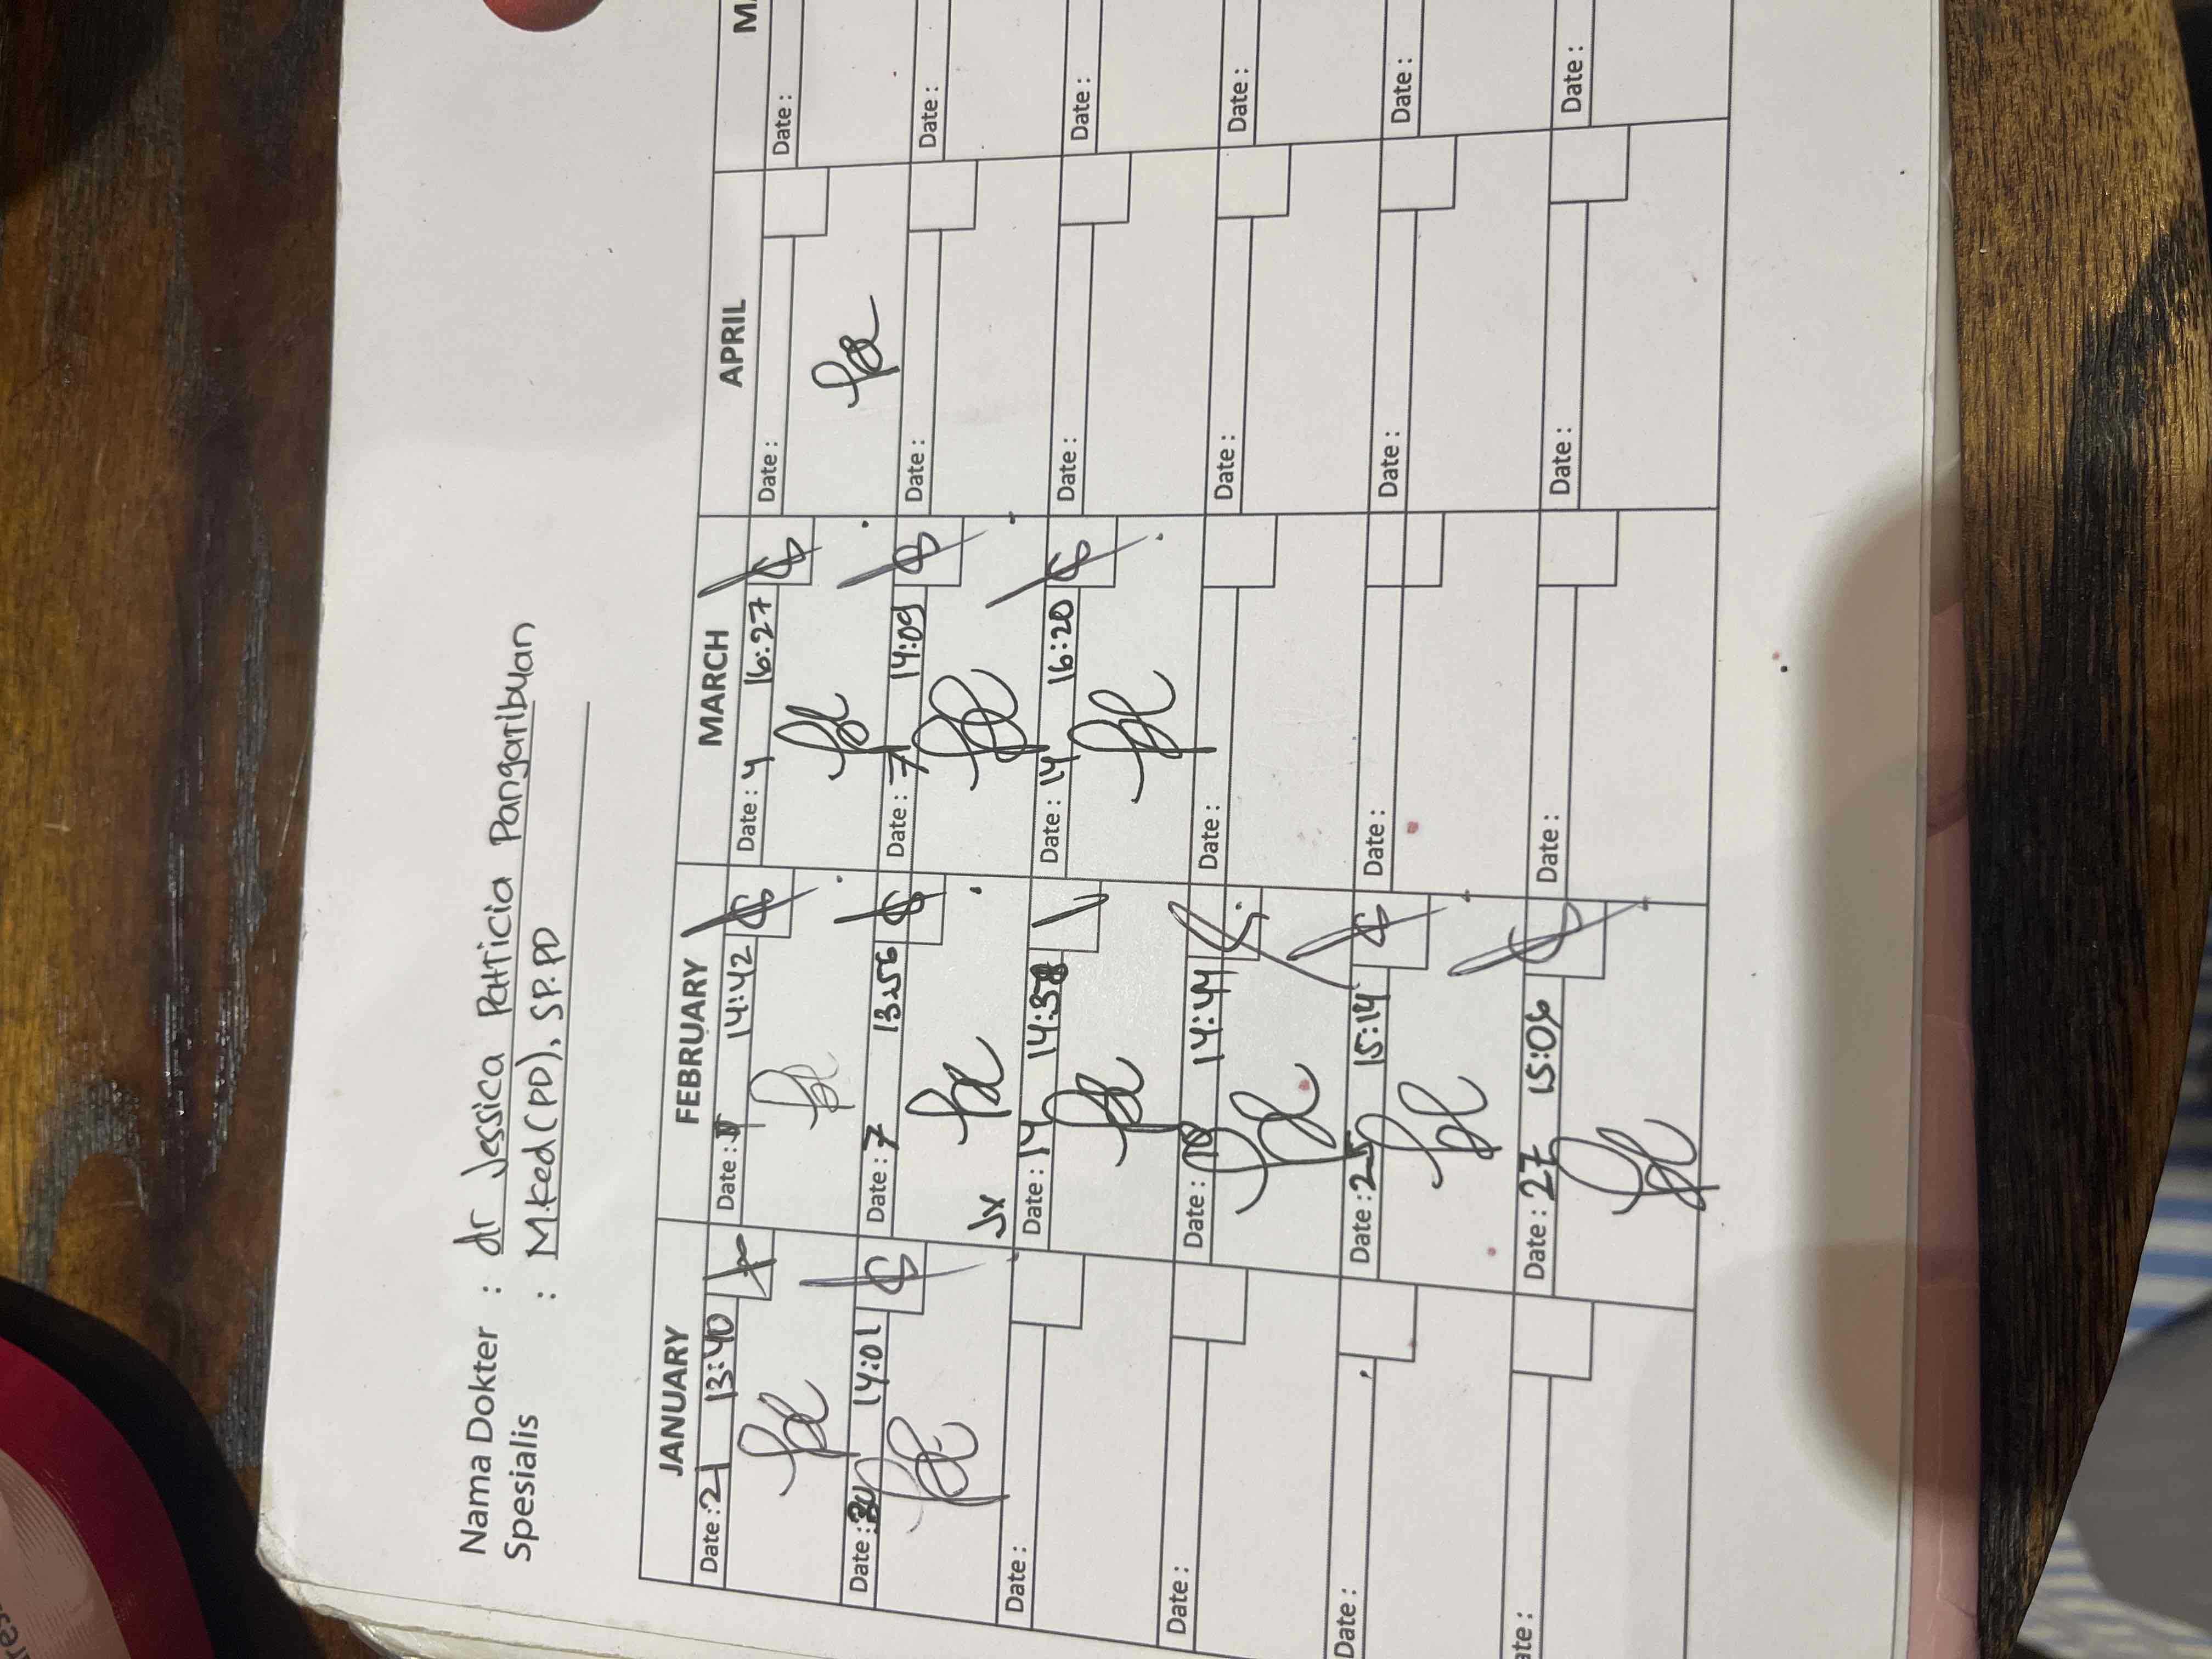 Nama Dokter : dr Jessica Patricia Pangaribuan
Spesialis : M.Ked(PD), SP.PD
JANUARY FEBRUARY MARCH APRIL
Date : 21 13:40 Date : 14:42 Date : 4 16:27 Date : Date :
Date : 30 14:01 Date : 7 13:56 Date : 7 14:09 Date : Date :
Date : Date : 14 14:38 Date : 14 16:20 Date : Date :
Date : Date : 14:44 Date : Date : Date :
Date : Date : 25 15:14 Date : Date : Date :
Date : 27 15:06 Date : Date : Date :